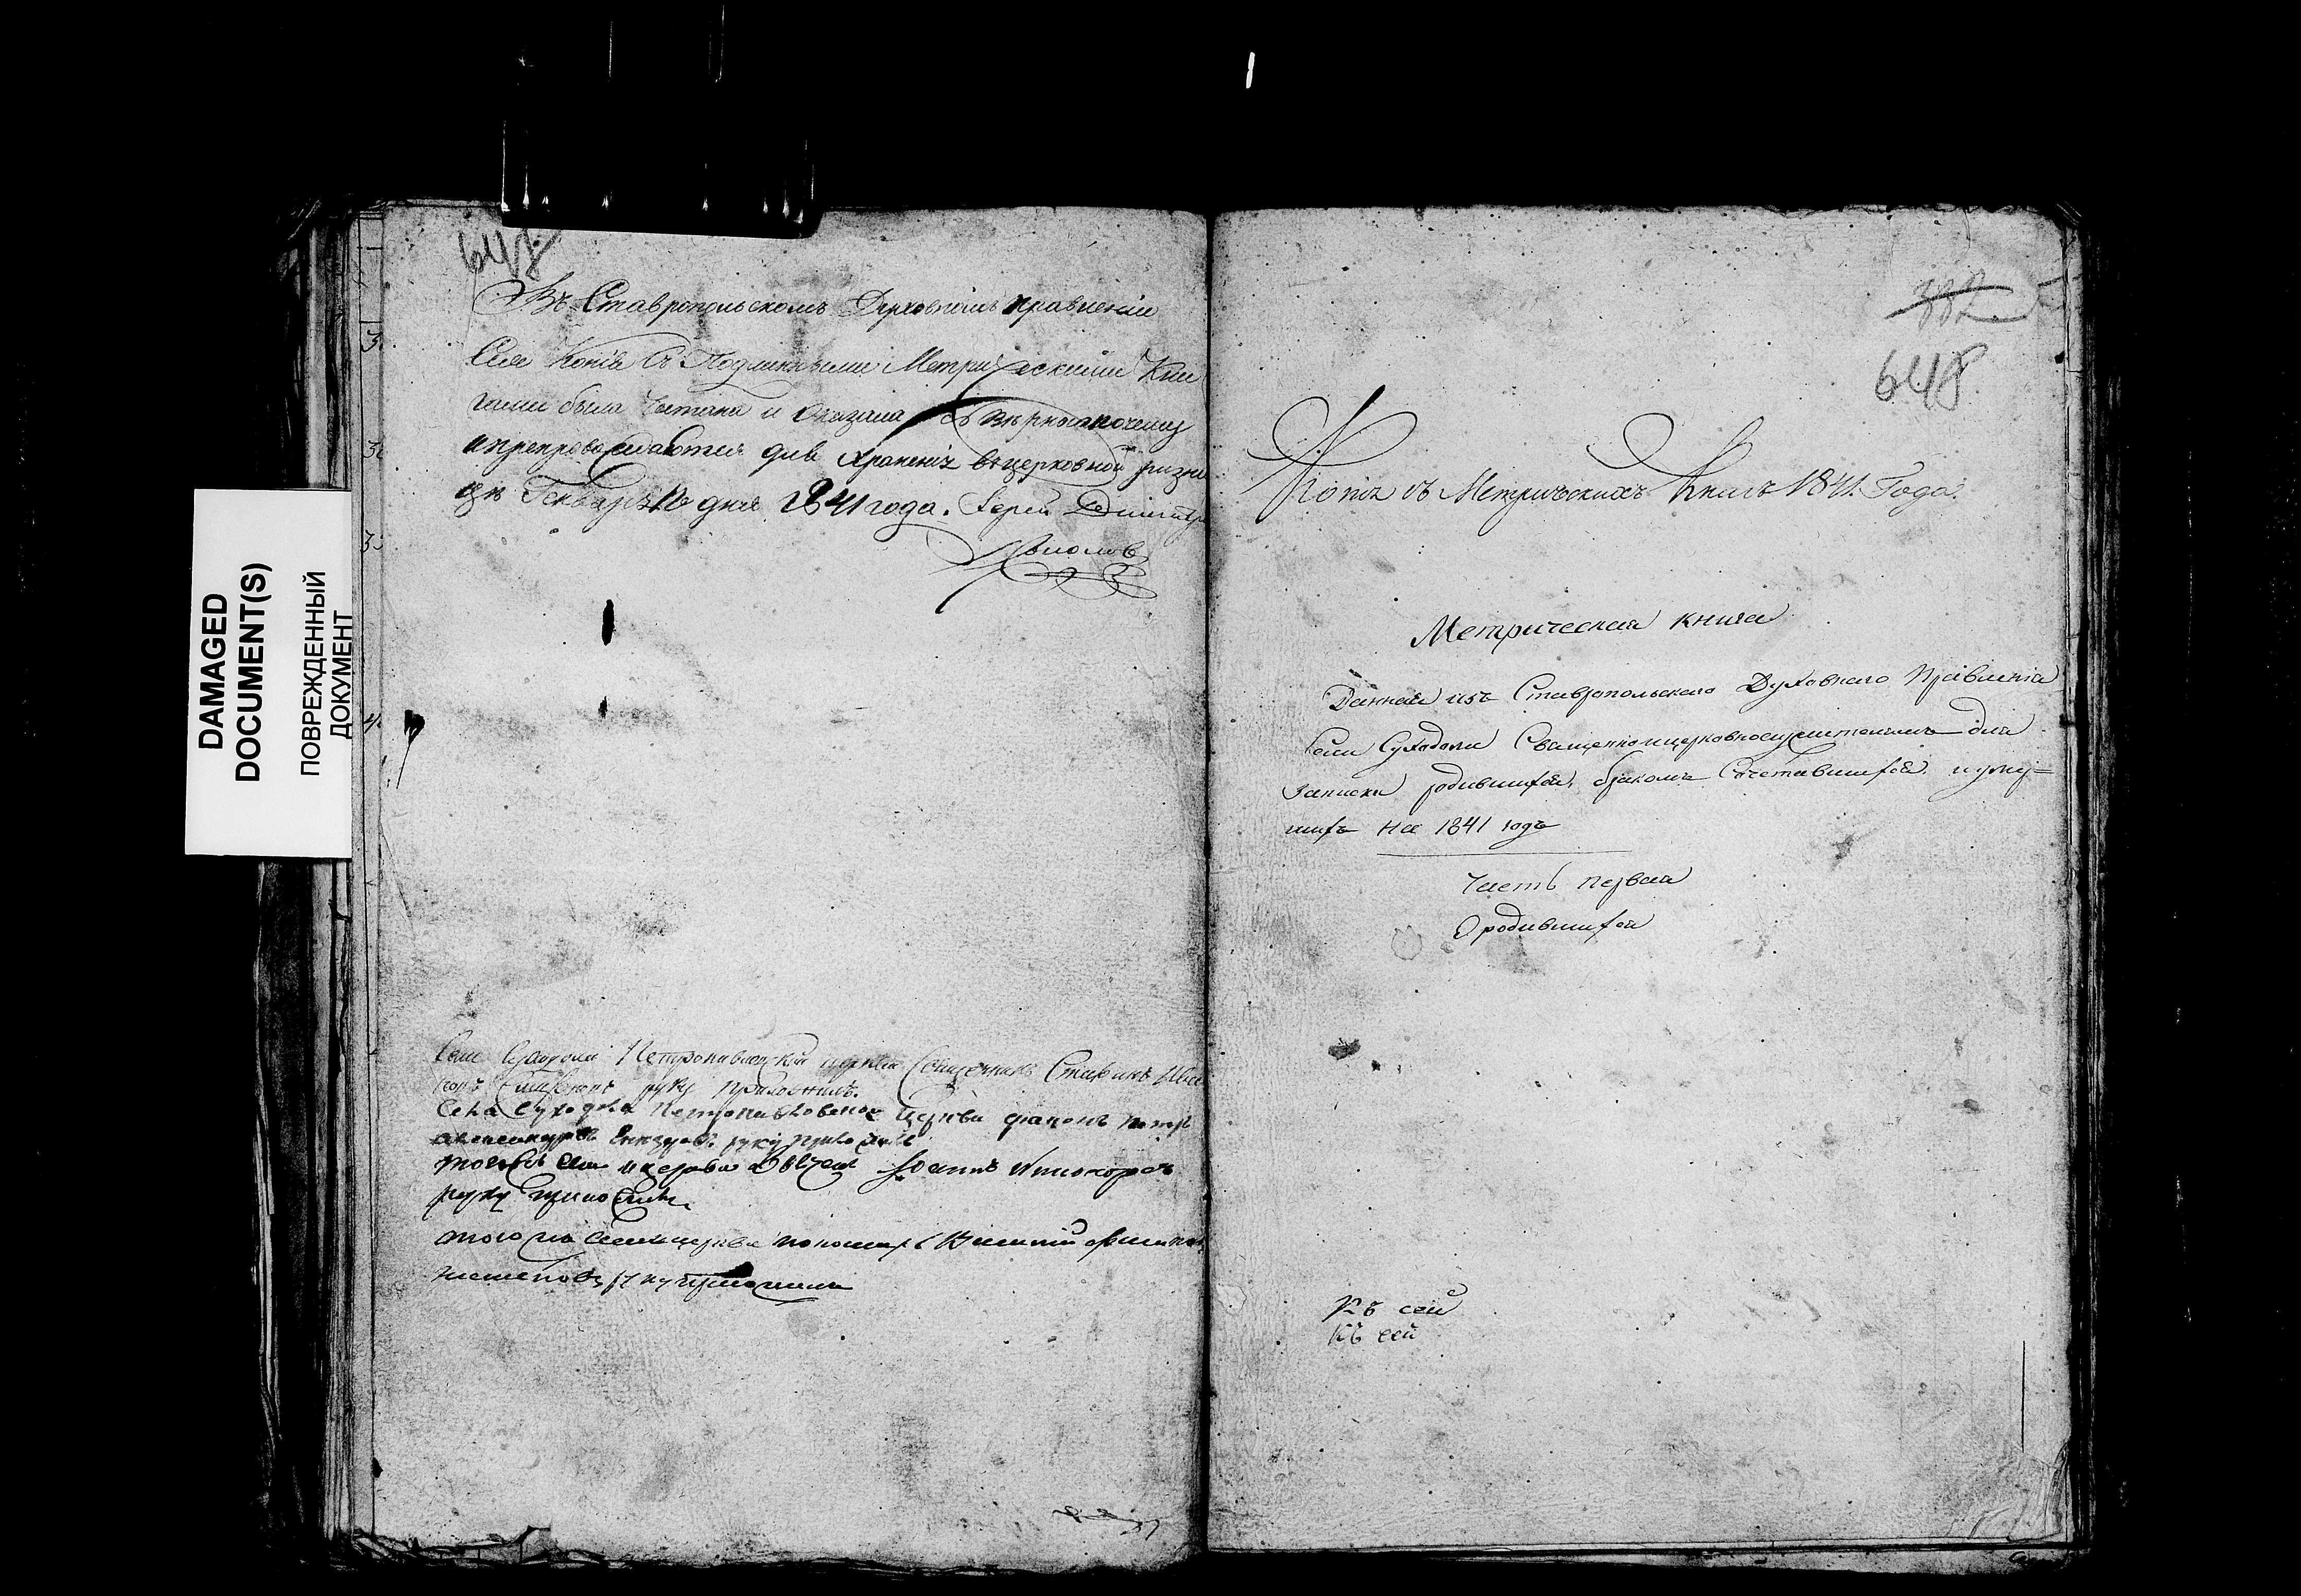 DAMAGED
DOCUMENT(S)
ПОВРЕЖДЕННЫЙ
ДОКУМЕНТ
648
Въ Ставропольскомъ Духовномъ правленіи
Сія Копія Съ Подлинными Метрическими Кни
гами была Читана и Оказалась Вѣрна почему
и препровождаются для храненія въ церковной ризни
цѣ Генваря дня 1841 года. Іерей Димитрі
Села Суходола Петропавловской церкви Священникъ Стефанъ
руку приложилъ.
Села Суходола Петропавловской Церкви діаконъ Петръ
руку приложилъ
тоя церкви Дьячекъ Іоаннъ
руку приложилъ
того села церкви пономарь Василій
руку приложилъ
382.
648
Копія съ Метрическихъ Книгъ 1841. Года.
Метрическая книга
Данная изъ Ставропольскаго Духовнаго Правленія
Села Суходола Священноцерковнослужителямъ для
Записки родившихся, бракомъ Сочетавшихся. и умер=
шихъ на 1841 годъ
Часть первая
О родившихся
Къ сей
Къ сей